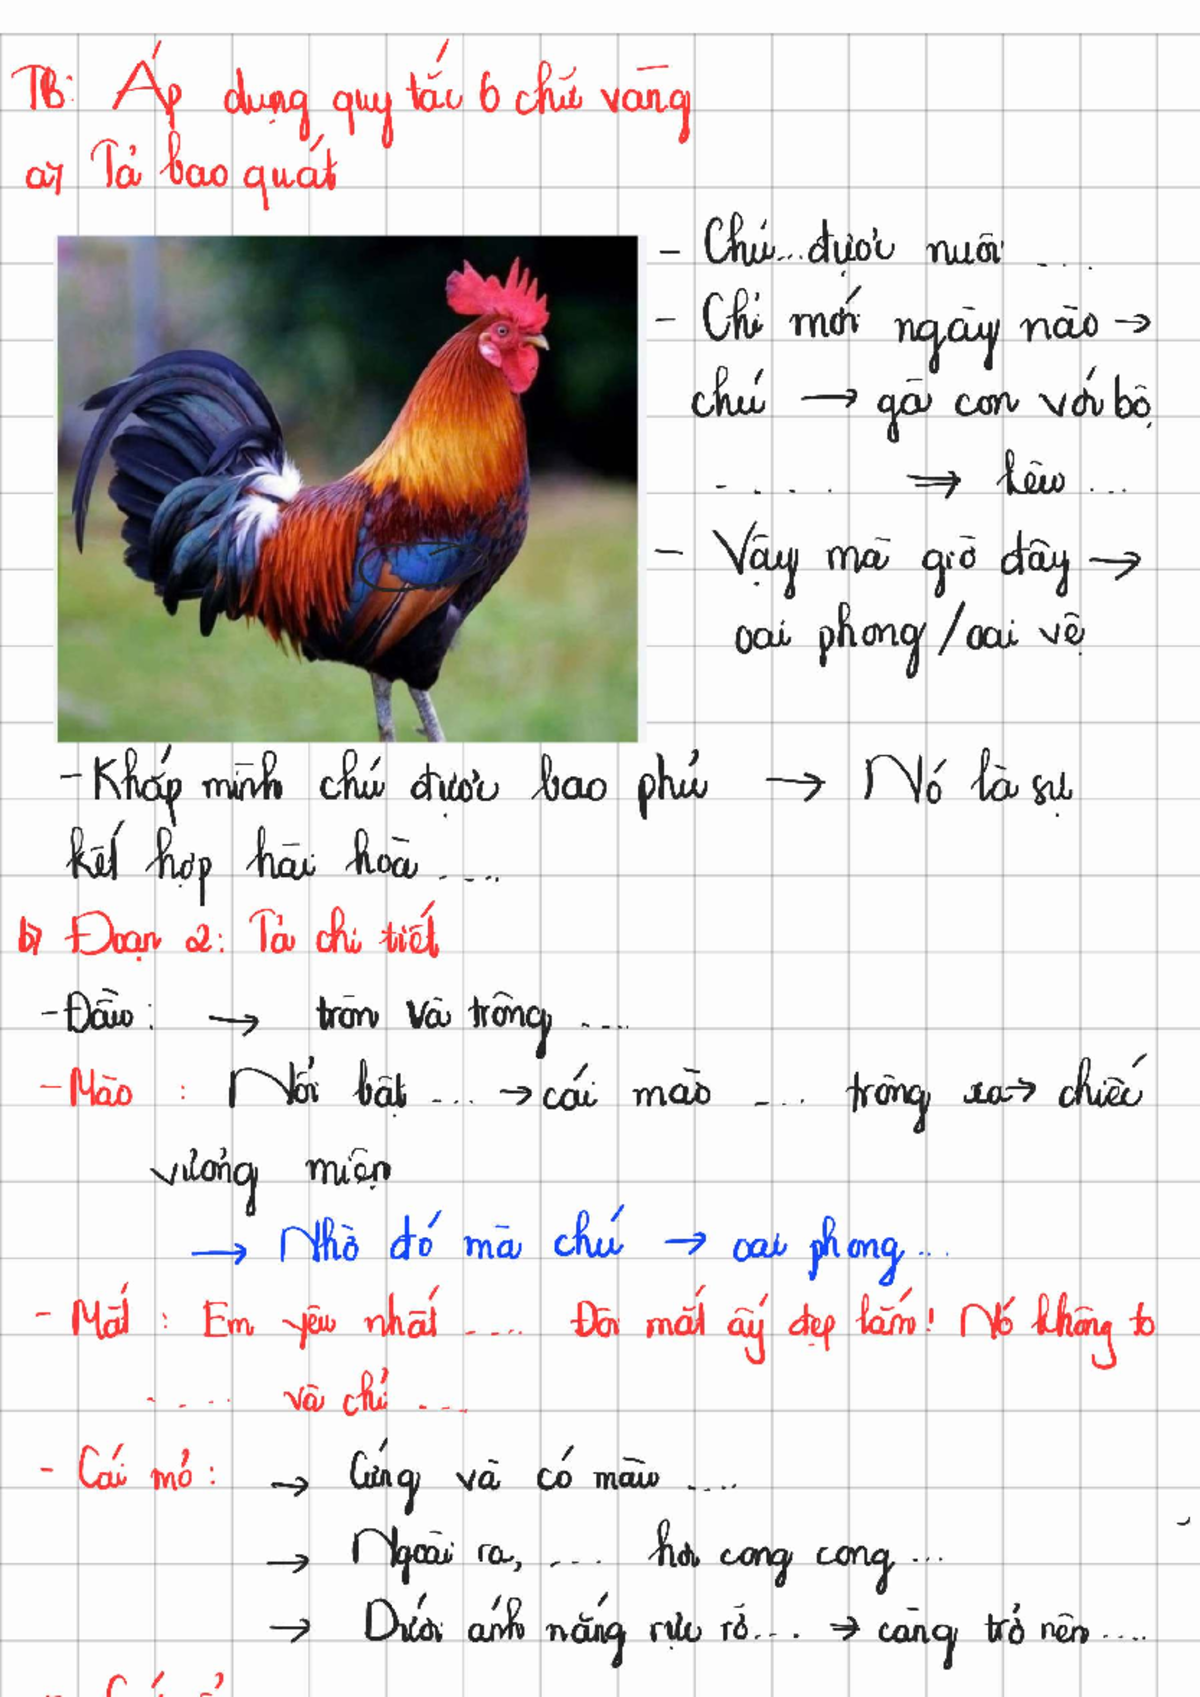 TB: Áp dụng quy tắc 6 chữ vàng
a) Tả bao quát
- Chú...được nuôi ....
- Chỉ mới ngày nào →
chú → gà con với bộ
..... ⇒ kêu ...
- Vậy mà giờ đây →
oai phong / oai vệ
- Khắp mình chú được bao phủ → Nó là sự
kết hợp hài hoà ....
b) Đoạn 2: Tả chi tiết
- Đầu: → tròn và trông ....
- Mào : Nổi bật ... → cái mào ... trông xa → chiếc
vương miện
→ Nhờ đó mà chú → oai phong ...
- Mắt : Em yêu nhất .... Đôi mắt ấy đẹp lắm! Nó không to
.... và chỉ ...
- Cái mỏ : → Cứng và có màu ....
→ Ngoài ra, .... hơi cong cong ...
→ Dưới ánh nắng rực rỡ.... → càng trở nên ....